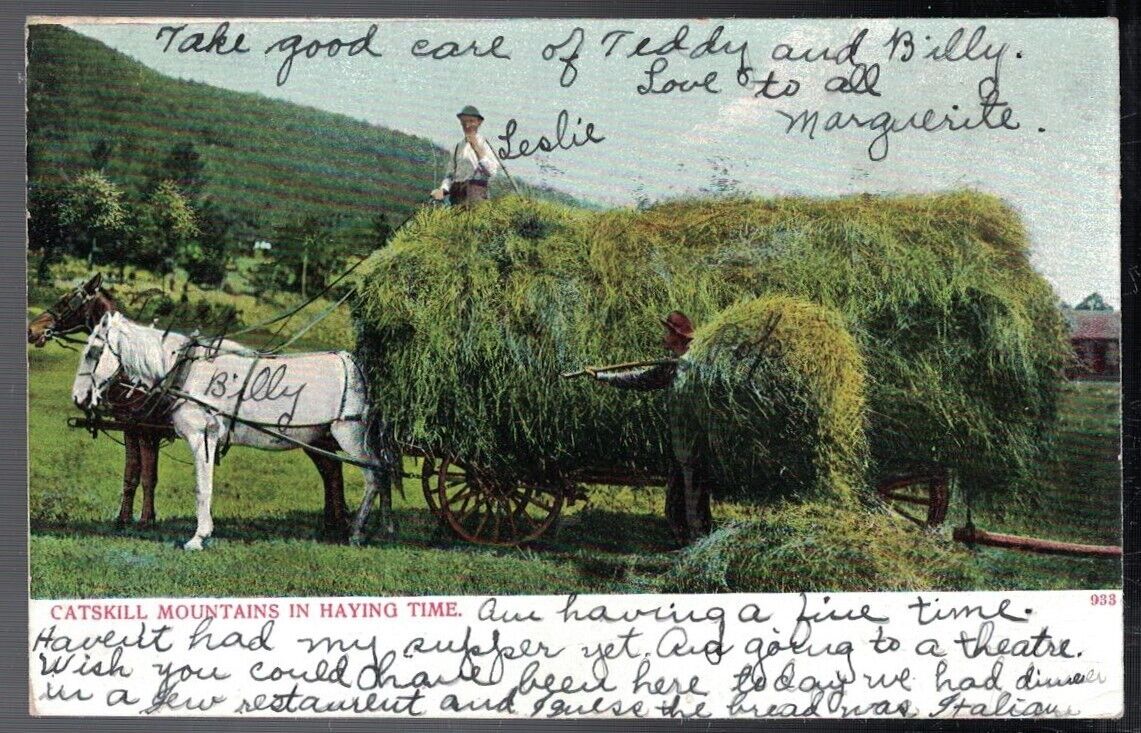 Take good care of Teddy and Billy.
Love to all
Marguerite.
Leslie
Billy
CATSKILL MOUNTAINS IN HAYING TIME. Am having a fine time. 933
Haven't had my supper yet. Am going to a theatre.
Wish you could have been here today we had dinner
in a Jew restaurant and I guess the bread was Italian